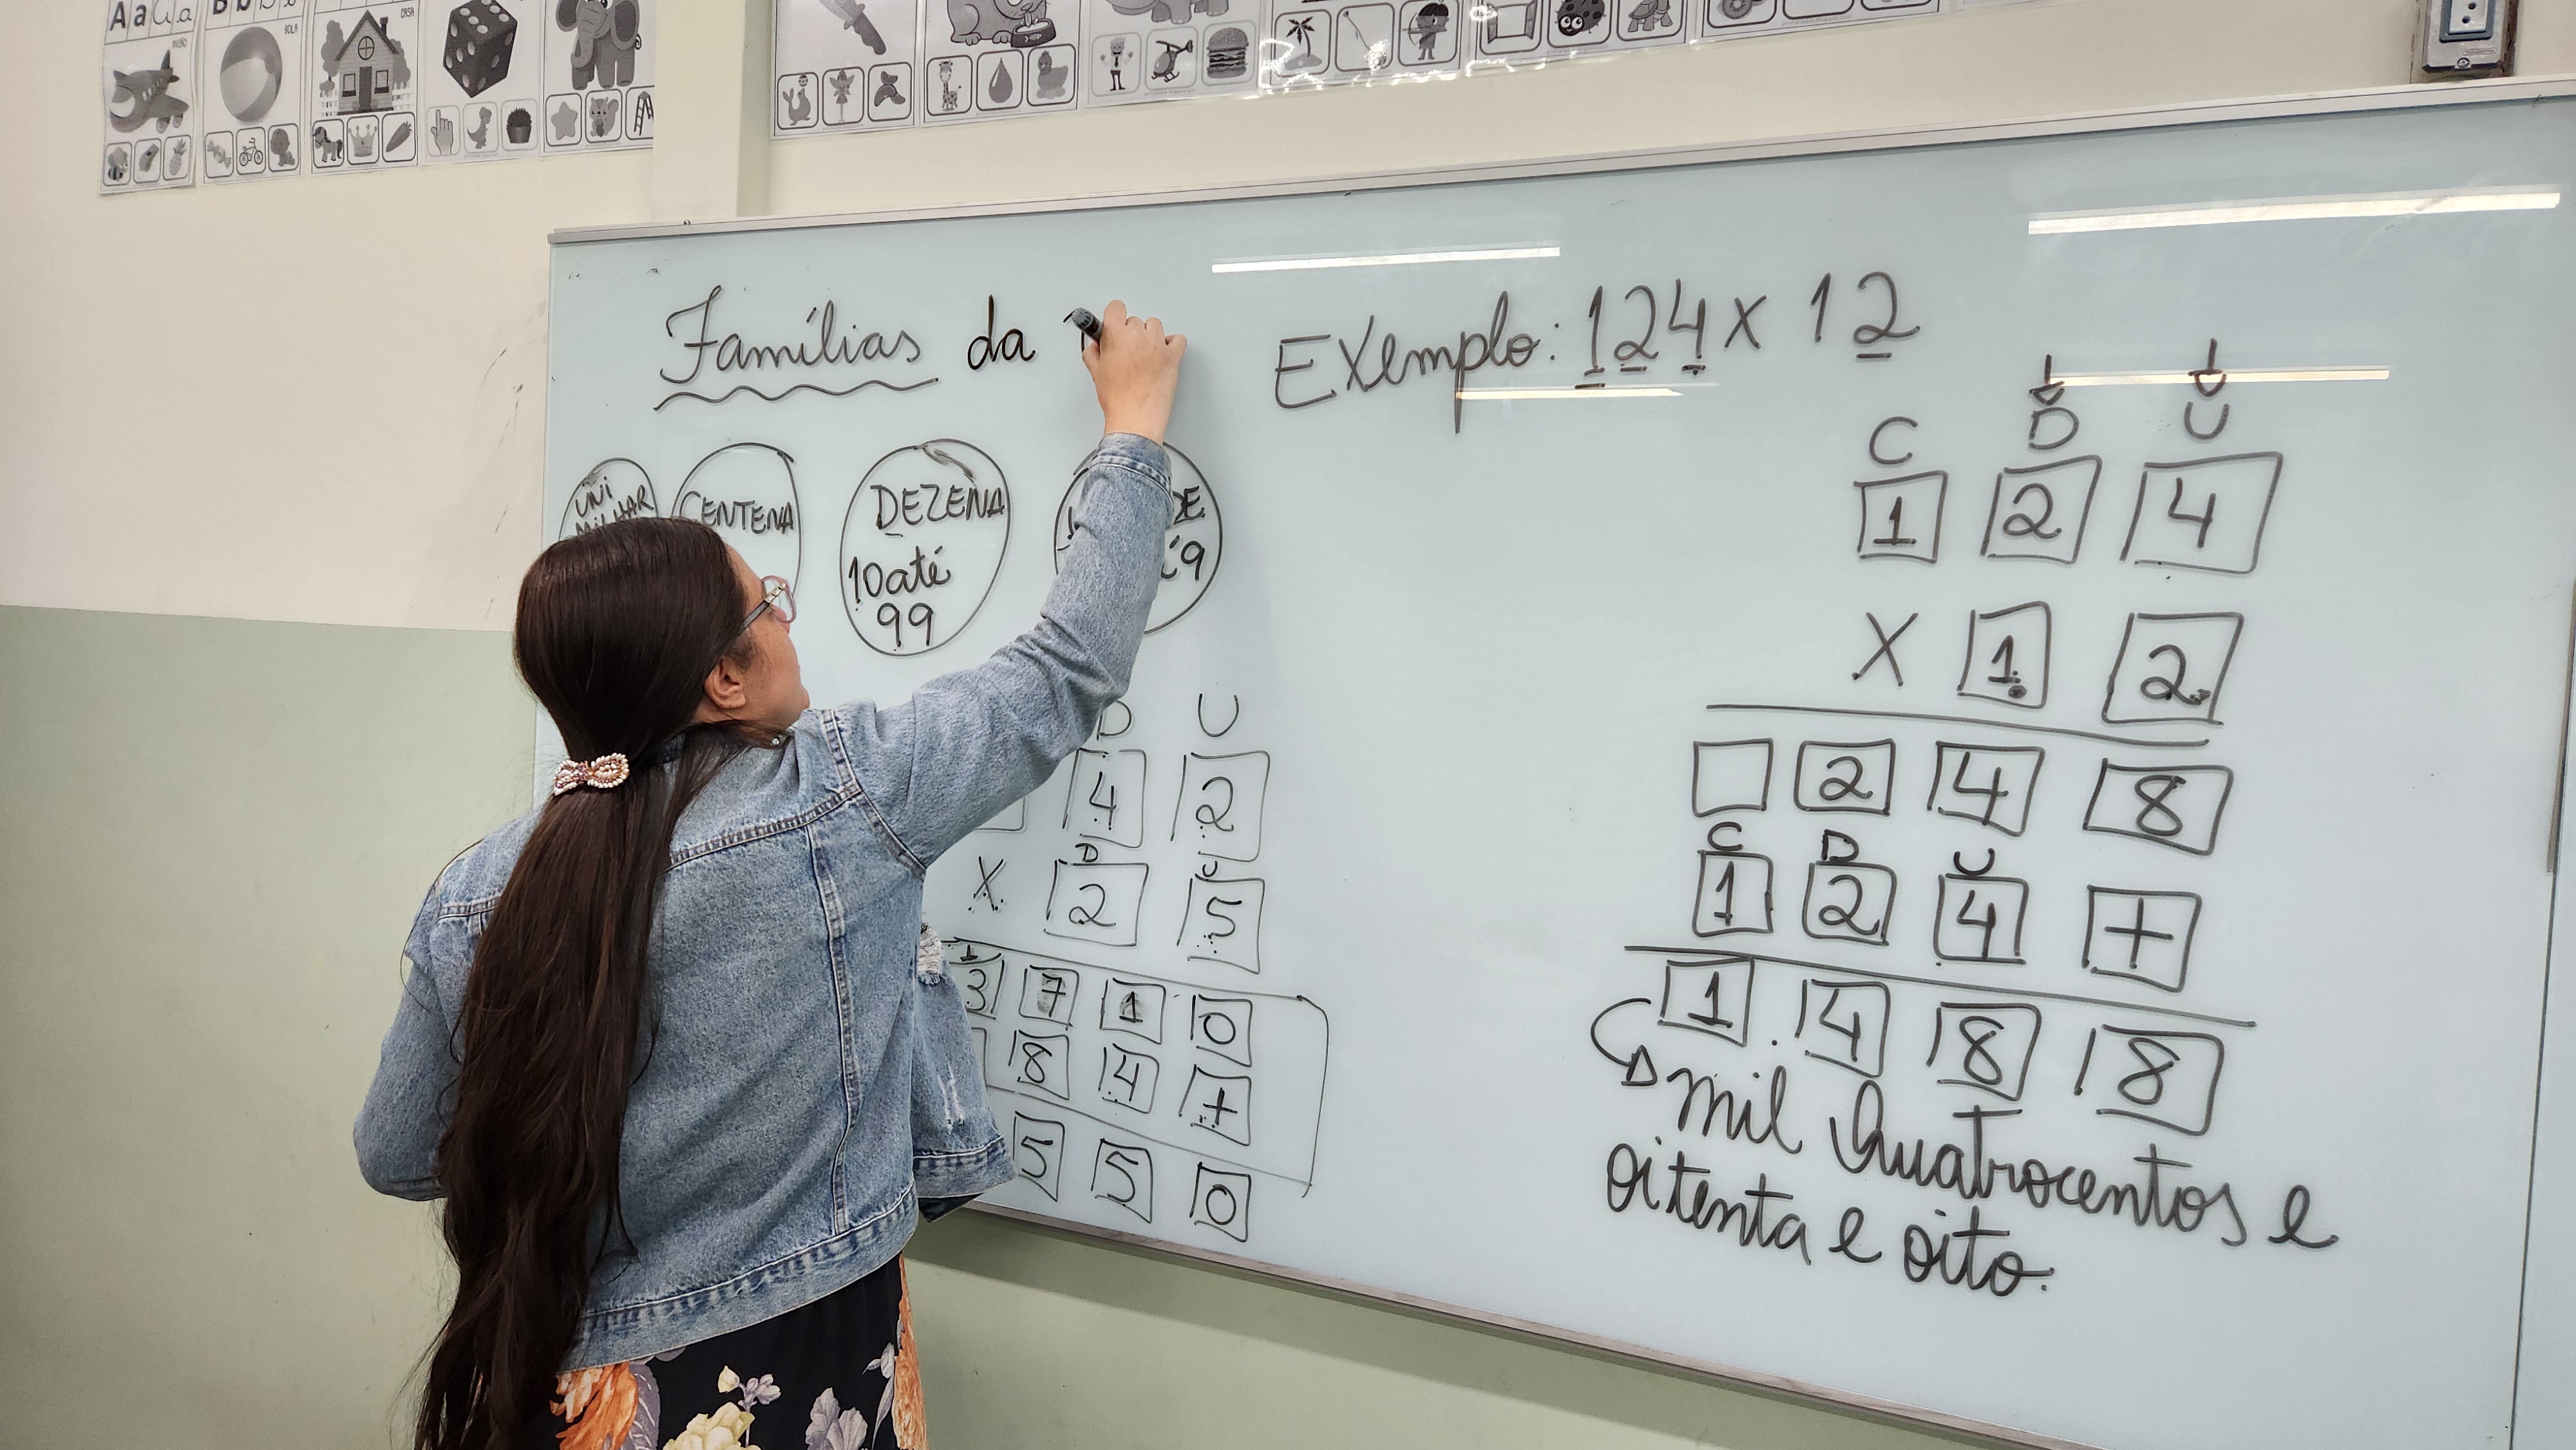 Aa
Bb
AVIÃO
BOLA
CASA
Famílias da
UNI
MILHAR
CENTENA
DEZENA
10 até
99
DE
9
D U
4 2
D U
X 2 5
1
3 7 1 0
8 4 +
5 5 0
Exemplo: 124 x 12
C D U
1 2 4
X 1 2
2 4 8
C D U
1 2 4 +
1.4 8 8
mil Quatrocentos e
oitenta e oito.